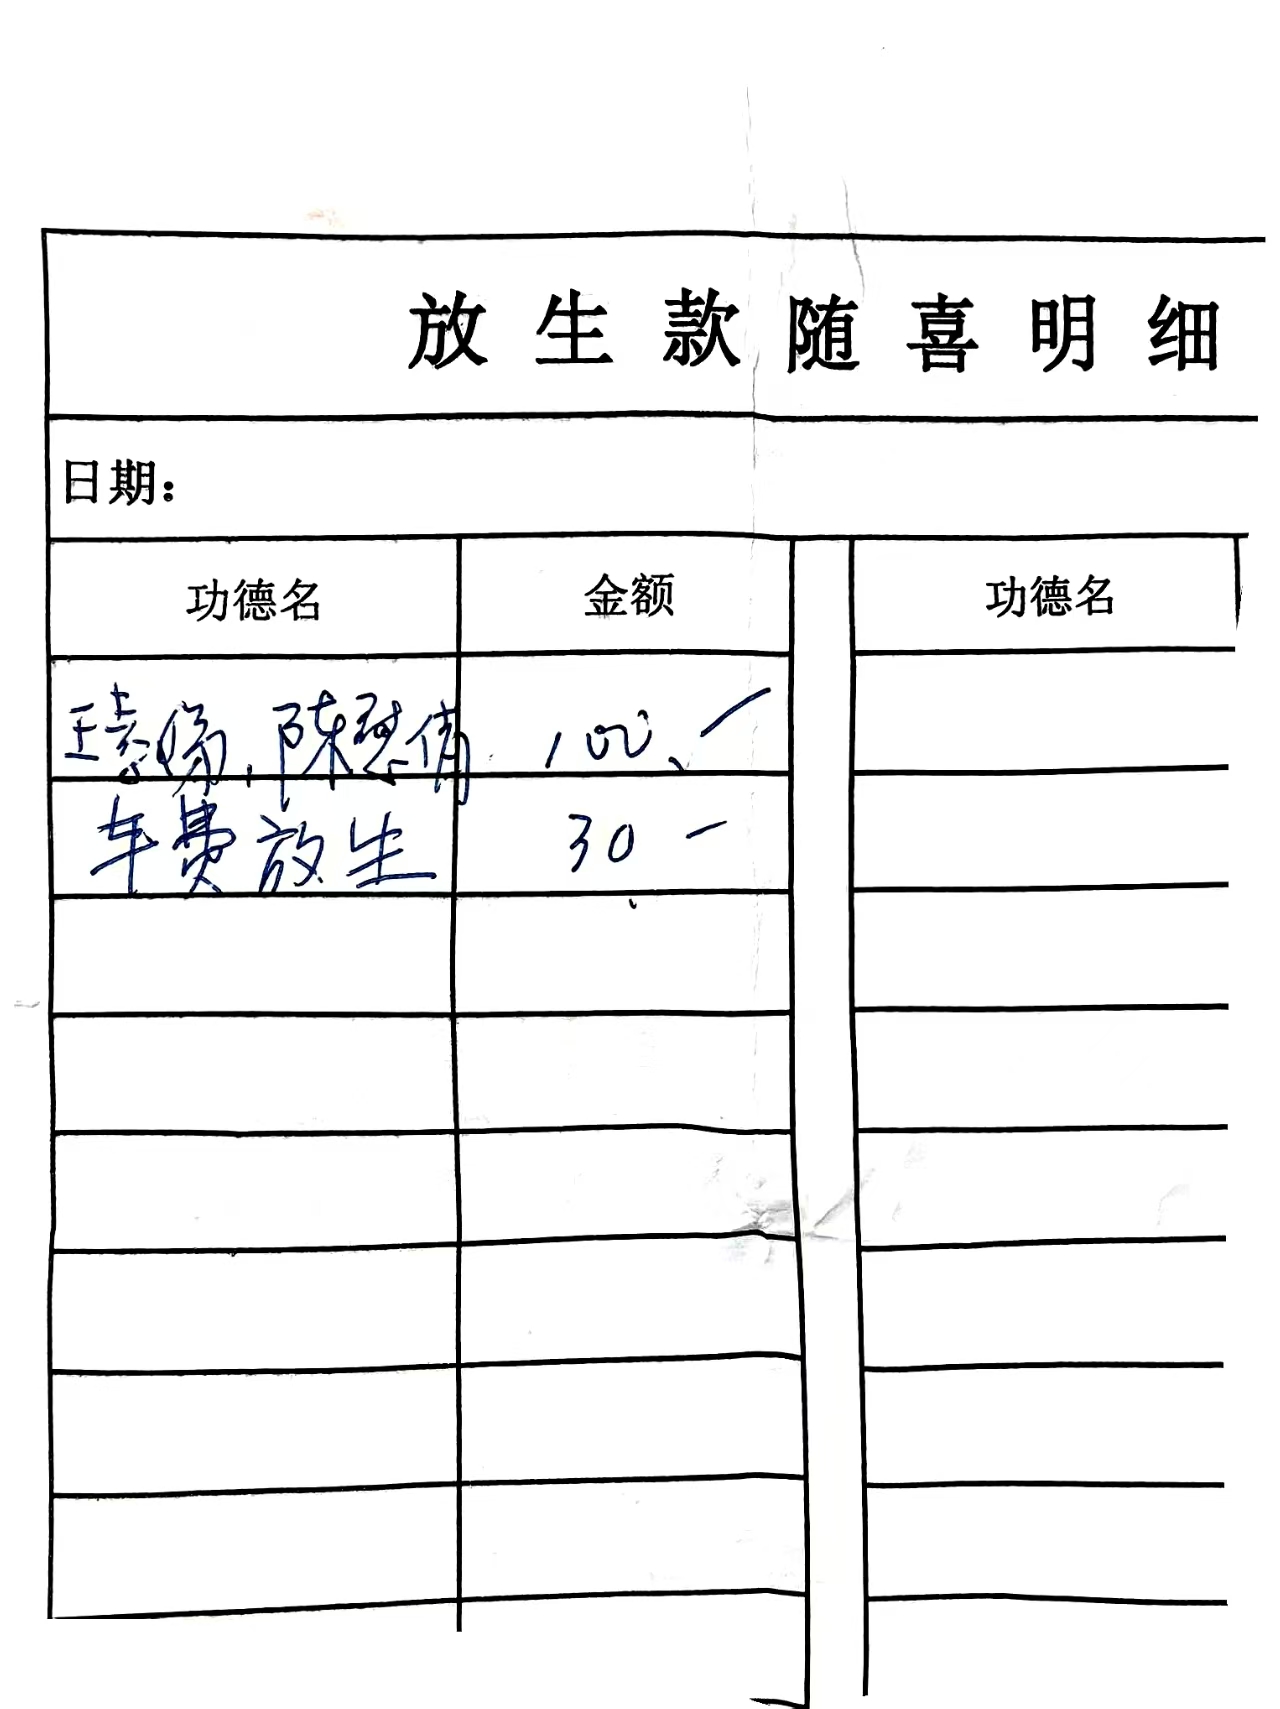 放生款随喜明细
日期：
功德名 金额 功德名
陈慧倩 100
车费放生 30